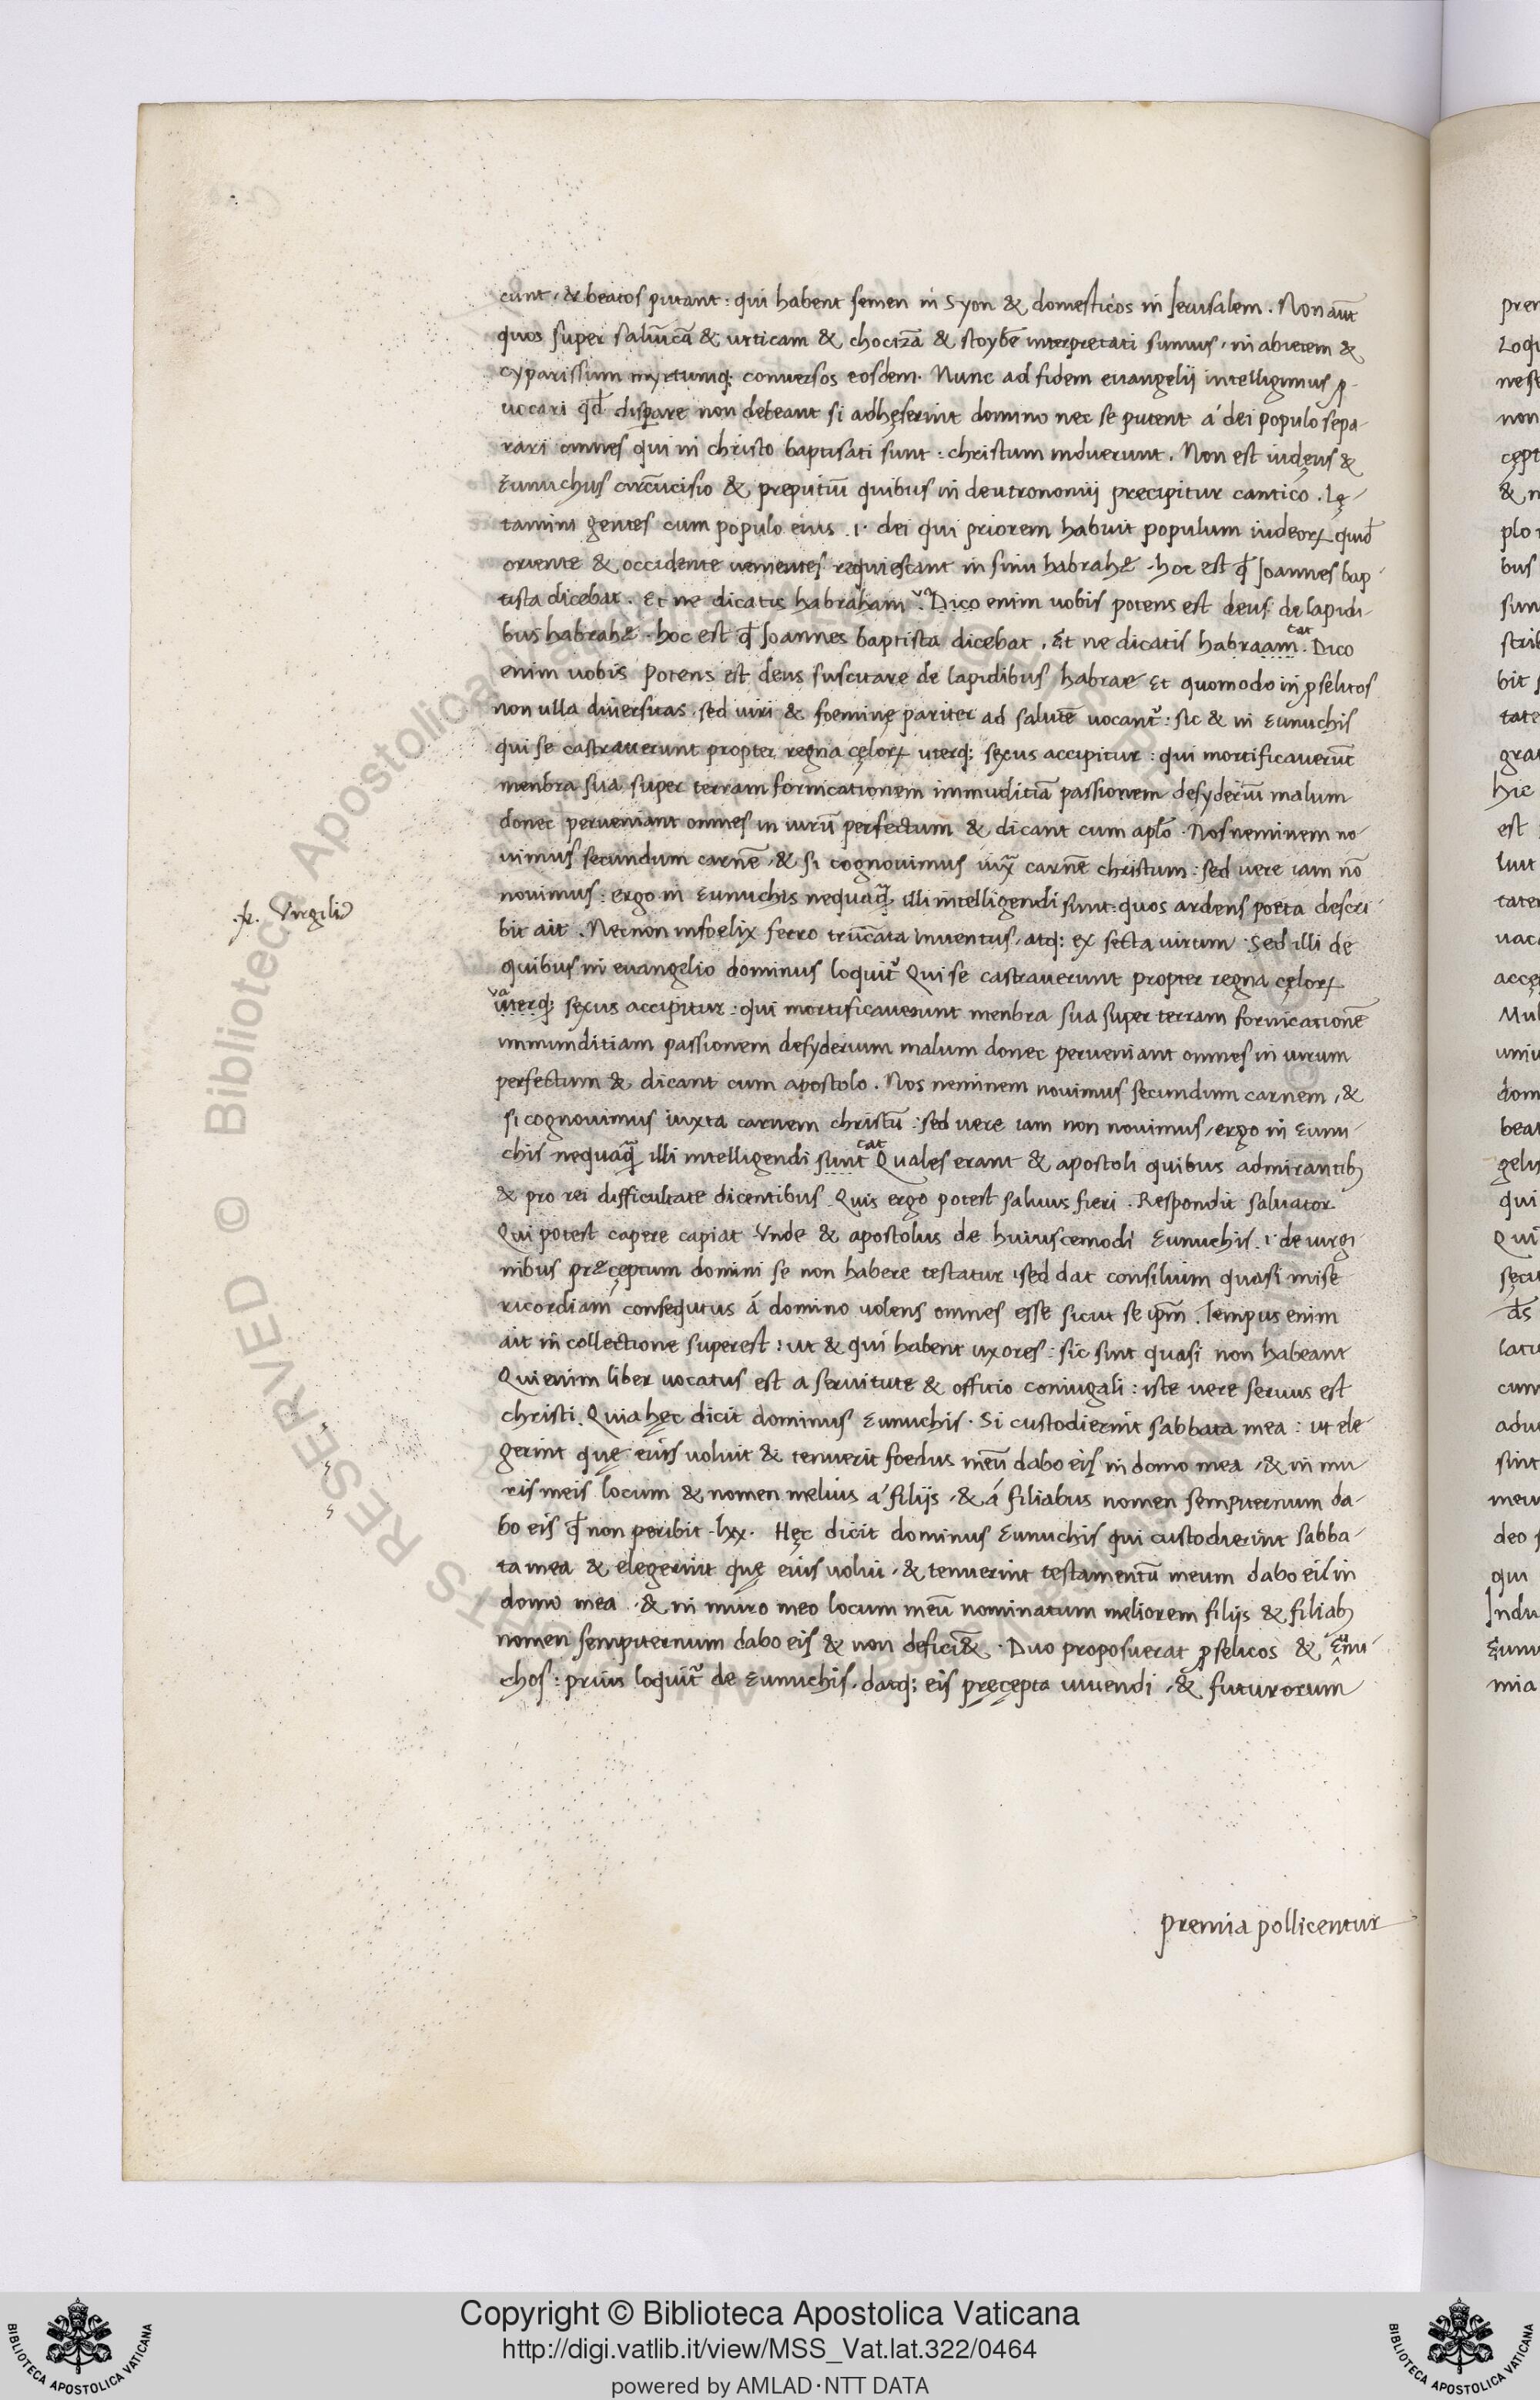 cunt, & beatos putant: qui habent semen in Syon & domesticos in Jerusalem. Non aūt
quos super saliūcā & urticam & choctzā & stoybē interpretati sumus, in abietem &
cyparissum myrtumq; conversos eosdem. Nunc ad fidem euangelij intelligimus ꝓ-
uocari qđ disꝑare non debeant si adhęserint domino nec se putent á dei populo sepa-
rari omnes qui in christo baptisati sunt: christum induerunt. Non est iudęus &
Eunuchus circūcisio & preputiū quibus in deutronomij precipitur cantico. Lę-
tamini gentes cum populo eius .i. dei qui priorem habuit populum iudeoꝝ quid
oriente & occidente uenientes requiescant in sinu habrahę. hoc est ꝙ Joannes bap-
tista dicebat. Et ne dicatis habraham va Dico enim uobis potens est deus de lapidi-
bus habrahę. hoc est ꝙ Joannes baptista dicebat. Et ne dicatis habraam cat. Dico
enim uobis Potens est deus suscitare de lapidibus habrae Et quomodo in ꝓselitos
non ulla diuersitas. sed uiri & foeminę pariter ad salutē uocantr̃: sic & in Eunuchis
qui se castrauerunt propter regna cęloꝝ uterq; sęxus accipitur: qui mortificauerūt
menbra sua super terram fornicationem immuditiā passionem desyderiū malum
donec perueniant omnes in uirū perfectum & dicant cum aplō. Nos neminem no-
uimus secundum carnē, & si cognouimus iuxͣ carnē christum: sed uere iam nō
nouimus: ergo in Eunuchis nequaꝙͣ illi intelligendi sunt: quos ardens poeta descri-
bit ait. Nec non infoelix ferro trūcata iuuentus, atq; ex secta uirum. Sed illi de
quibus in euangelio dominus loquitr̃ Qui se castrauerunt propter regna cęloꝝ
va uterq; sęxus accipitur: qui mortificauerunt menbra sua super terram fornicationē
immunditiam passionem desyderium malum donec perueniant omnes in uirum
perfectum & dicant cum apostolo. Nos neminem nouimus secundum carnem, &
si cognouimus iuxta carnem christū: sed uere iam non nouimus, ergo in Eunu-
chis nequaꝙͣ illi intelligendi sunt cat Quales erant & apostoli quibus admirantibꝫ
& pro rei difficultate dicentibus Quis ergo potest saluus fieri. Respondit saluator
Qui potest capere capiat Vnde & apostolus de huiuscemodi Eunuchis .i. de uirgi-
nibus pręceptum domini se non habere testatur, sed dat consilium quasi mise
ricordiam consequtus á domino uolens omnes esse sicut se ip̄m. Tempus enim
ait in collectione superest: ut & qui habent uxores: sic sint quasi non habeant
Qui enim liber uocatus est a seruitute & officio coniugali: iste uere seruus est
christi. Quia hęc dicit dominus Eunuchis. Si custodierint sabbata mea: ut ele-
gerint quę eius uoluit & tenuerit foedus meū dabo eis in domo mea, & in mu-
ris meis locum & nomen melius á filijs, & á filiabus nomen sempiternum da-
bo eis ꝙ non peribit. lxx. Hęc dicit dominus Eunuchis qui custodierint sabba-
ta mea & elegerint quę eius uolui, & tenuerint testamentū meum dabo eis in
domo mea, & in muro meo locum meū nominatum meliorem filijs & filiabꝫ
nomen sempiternum dabo eis & non defici&. Duo proposuerat ꝓselitos & Eunu-
chos: prius loquitr̃ de Eunuchis, datq; eis pręcępta uiuendi, & futurorum
Virgiliꝰ
premia pollicentur
Copyright © Biblioteca Apostolica Vaticana
http://digi.vatlib.it/view/MSS_Vat.lat.322/0464
powered by AMLAD·NTT DATA
BIBLIOTECA APOSTOLICA VATICANA
BIBLIOTECA APOSTOLICA VATICANA